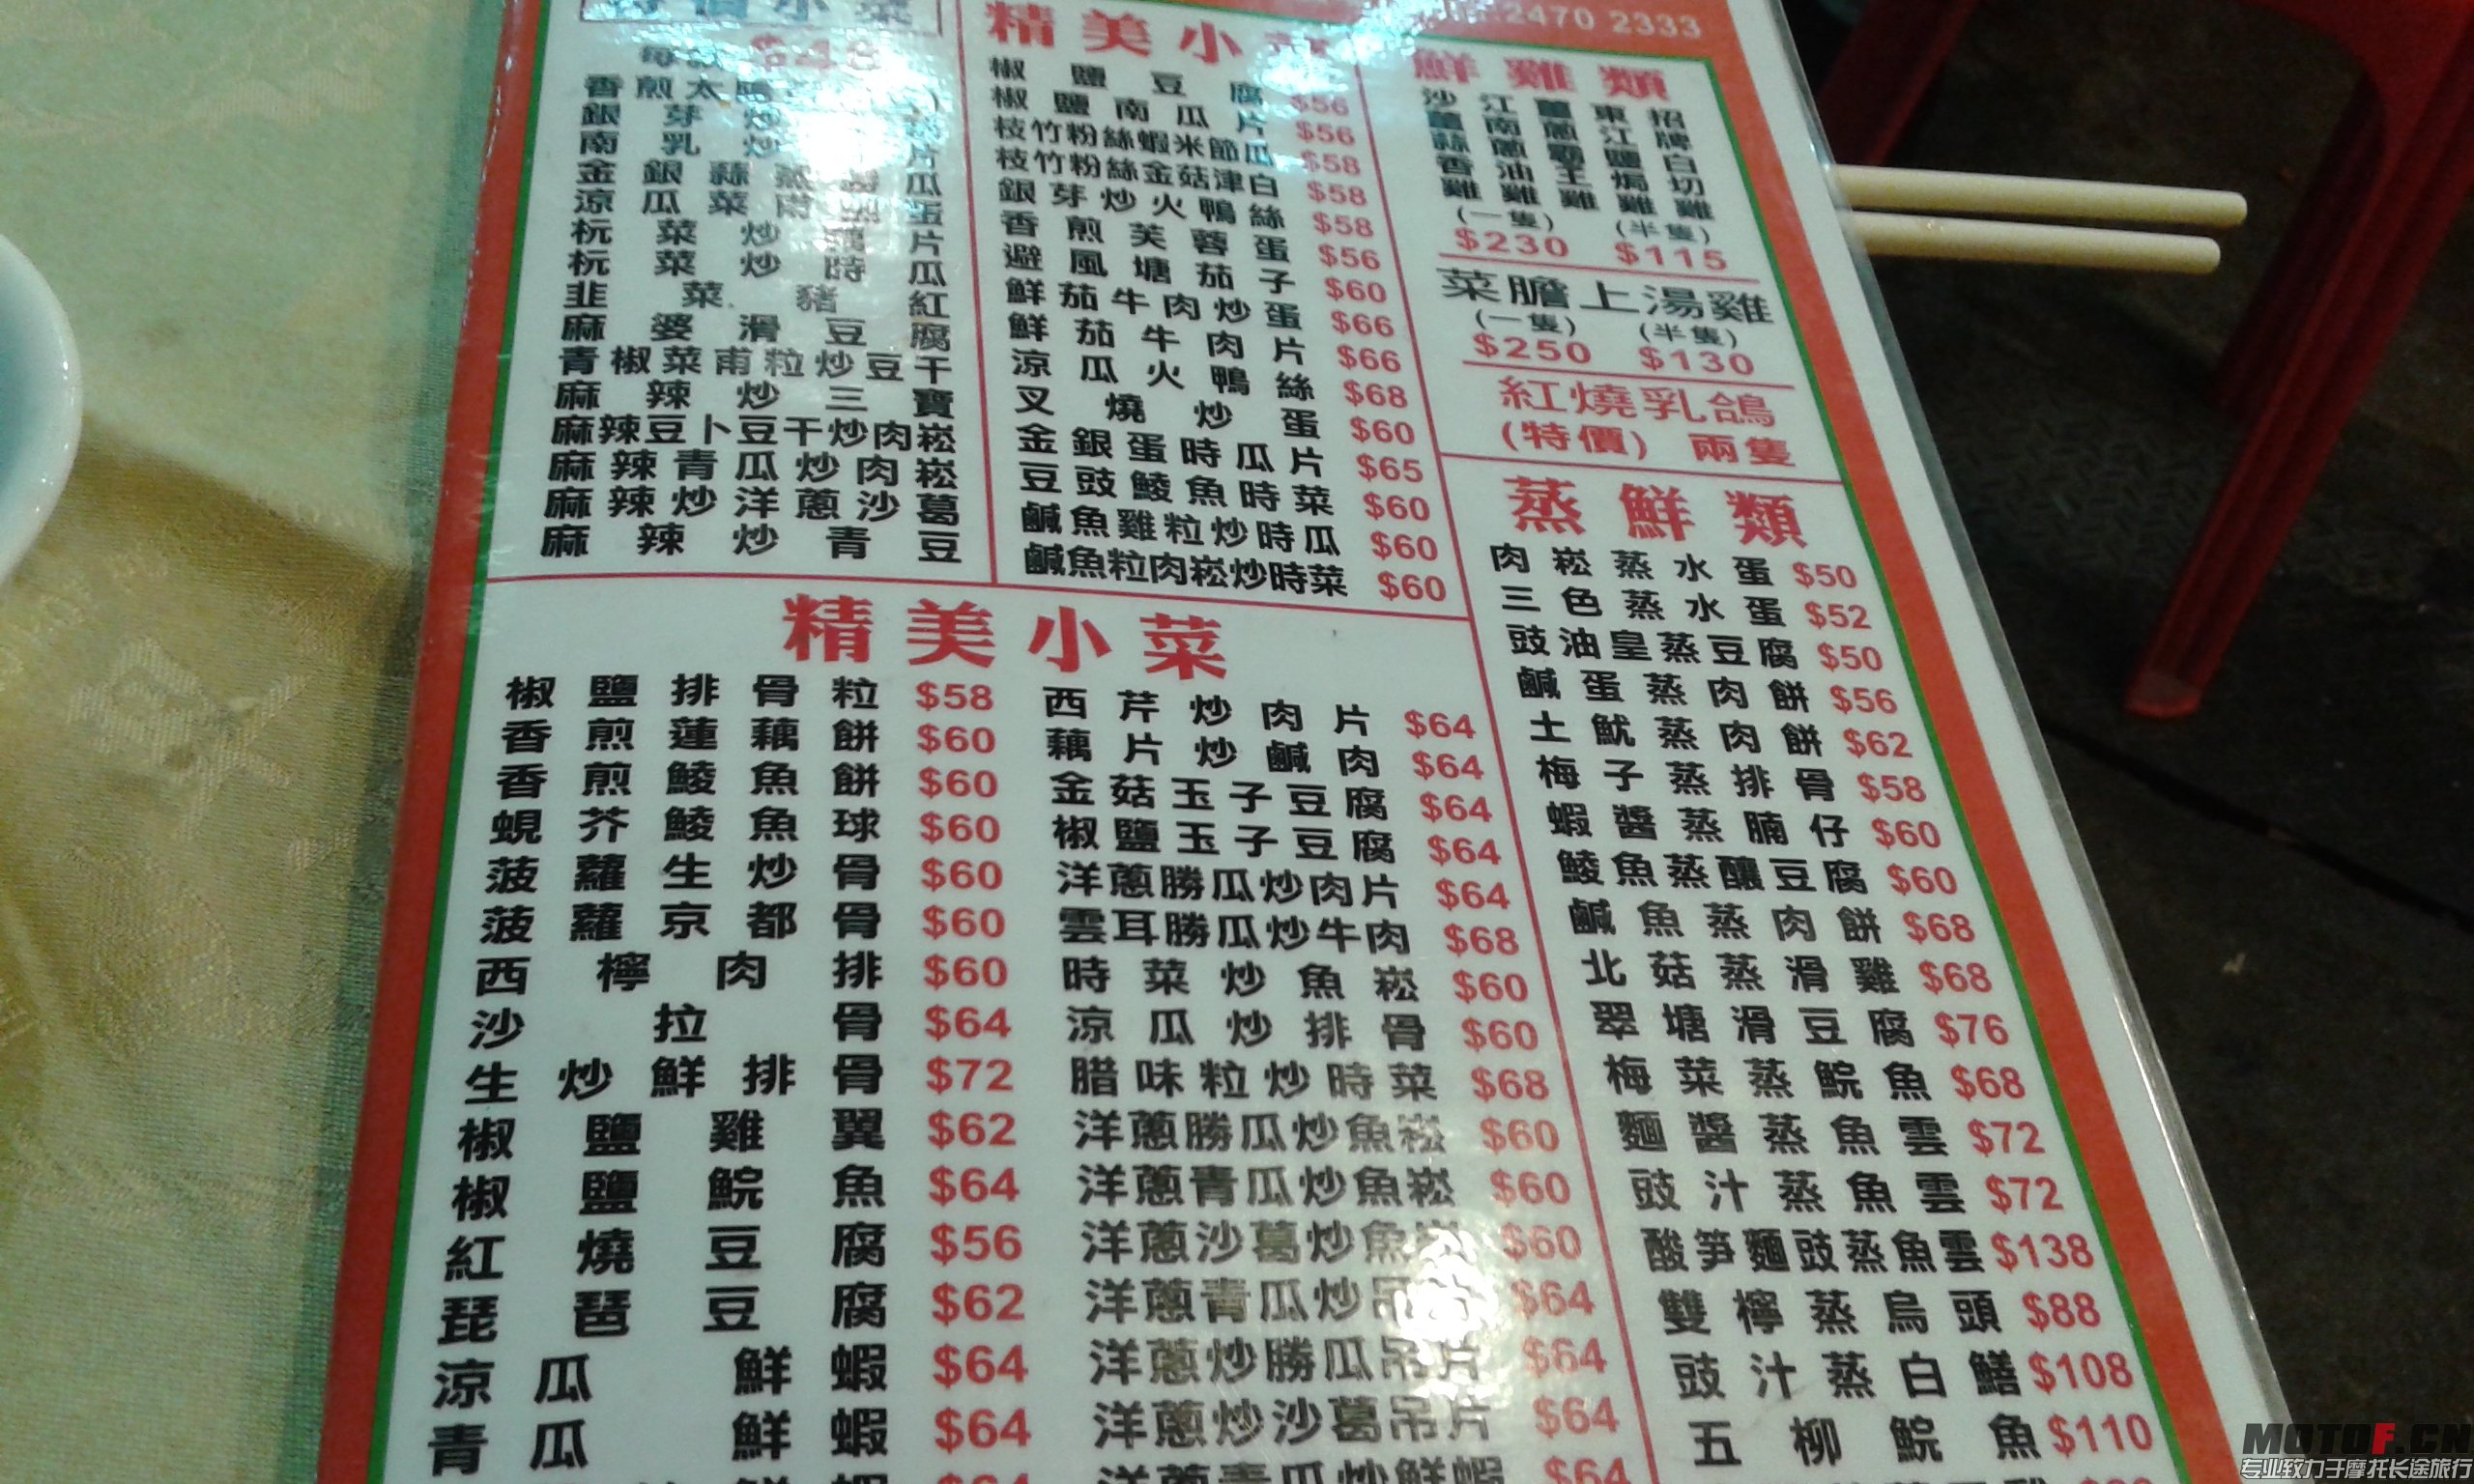 2470 2333
小菜
$48
香煎太
銀芽炒
南乳炒 片
金銀蒜蒸 瓜
涼瓜菜甫 蛋
杬菜炒 片
杬菜炒時瓜
韭菜豬紅
麻婆滑豆腐
青椒菜甫粒炒豆干
麻辣炒三寶
麻辣豆卜豆干炒肉崧
麻辣青瓜炒肉崧
麻辣炒洋蔥沙葛
麻辣炒青豆
精美小
椒鹽豆腐 $56
椒鹽南瓜片 $56
枝竹粉絲蝦米節瓜 $58
枝竹粉絲金菇津白 $58
銀芽炒火鴨絲 $58
香煎芙蓉蛋 $56
避風塘茄子 $60
鮮茄牛肉炒蛋 $66
鮮茄牛肉片 $66
涼瓜火鴨絲 $68
叉燒炒蛋 $60
金銀蛋時瓜片 $65
豆豉鯪魚時菜 $60
鹹魚雞粒炒時瓜 $60
鹹魚粒肉崧炒時菜 $60
鮮雞類
招牌白切雞
東江鹽焗雞
薑蔥霸王雞
江南蔥油雞
沙薑蒜香雞
(一隻) (半隻)
$230 $115
菜膽上湯雞
(一隻) (半隻)
$250 $130
紅燒乳鴿
(特價) 兩隻
精美小菜
椒鹽排骨粒 $58
香煎蓮藕餅 $60
香煎鯪魚餅 $60
蜆芥鯪魚球 $60
菠蘿生炒骨 $60
菠蘿京都骨 $60
西檸肉排 $60
沙拉骨 $64
生炒鮮排骨 $72
椒鹽雞翼 $62
椒鹽鯇魚 $64
紅燒豆腐 $56
琵琶豆腐 $62
涼瓜鮮蝦 $64
青瓜鮮蝦 $64
西芹炒肉片 $64
藕片炒鹹肉 $64
金菇玉子豆腐 $64
椒鹽玉子豆腐 $64
洋蔥勝瓜炒肉片 $64
雲耳勝瓜炒牛肉 $68
時菜炒魚崧 $60
涼瓜炒排骨 $60
腊味粒炒時菜 $68
洋蔥勝瓜炒魚崧 $60
洋蔥青瓜炒魚崧 $60
洋蔥沙葛炒魚崧 $60
洋蔥青瓜炒吊片 $64
洋蔥炒勝瓜吊片 $64
洋蔥炒沙葛吊片 $64
洋蔥青瓜炒鮮蝦 $64
蒸鮮類
肉崧蒸水蛋 $50
三色蒸水蛋 $52
豉油皇蒸豆腐 $50
鹹蛋蒸肉餅 $56
土魷蒸肉餅 $62
梅子蒸排骨 $58
蝦醬蒸腩仔 $60
鯪魚蒸釀豆腐 $60
鹹魚蒸肉餅 $68
北菇蒸滑雞 $68
翠塘滑豆腐 $76
梅菜蒸鯇魚 $68
麵醬蒸魚雲 $72
豉汁蒸魚雲 $72
酸笋麵豉蒸魚雲 $138
雙檸蒸烏頭 $88
豉汁蒸白鱔 $108
五柳鯇魚 $110
MOTOF.CN
专业致力于摩托长途旅行